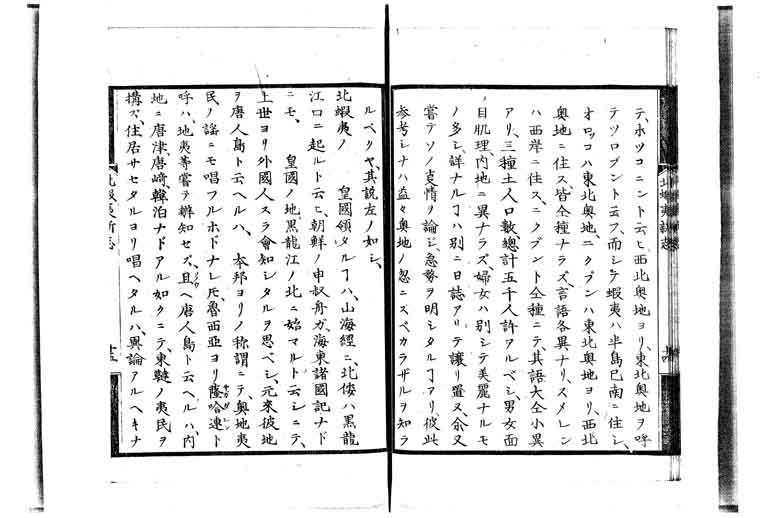 テ、ホツコニントト云ヒ、西北奥地ヨリ、東北奥地ヲ呼
テツロブントト云フ、而シテ蝦夷ハ半島已南ニ住シ、
オロッコハ東北奥地、ニクブンハ東北奥地ヨリ、西北
奥地ニ住ス、皆仝種ナラズ、言語各異ナリ、スメレン
ハ西岸ニ住ス、ニクブント仝種ニテ、其語大仝小異
アリ、三種土人口数、總計五千人許アルベシ、男女面
目肌理、内地ニ異ナラズ、婦女ハ別シテ美麗ナルモ
ノ多シ、詳ナルヿハ別ニ日誌アリテ讓リ置ヌ、余又
嘗テソノ哀情ヲ論シ、急務ヲ明シタルヿアリ、彼此
参考シナハ益々奥地ノ忽ニスベカラザルヲ知ラ
ルベクヤ、其説左ノ如シ、
北蝦夷ノ 皇國領タルヿハ、山海經ニ、北倭ハ黒龍
江口ニ起ルト云ヒ、朝鮮ノ申叔舟ガ、海東諸國記ナド
ニモ、 皇國ノ地、黒龍江ノ北ニ始マルト云シニテ、
上世ヨリ外國人スラ會知シタルヲ思ベシ、元來彼地
ヲ唐人島ト云ヘルハ、 本邦ヨリノ称謂ニテ、奥地夷
民ノ謡ニモ唱フルホドナレ𪜈、魯西亜ヨリ薩哈連ト
呼ハ、地夷等嘗テ辧知セズ、且ヘ唐人島ト云ヘルハ、内
地ニ唐津唐崎、韓泊ナドアル如クニテ、東韃ノ夷民ヲ
搆ズ、住居サセタルヨリ唱ヘタルハ、異論アルヘキナ
北蝦夷新志
十四
北蝦夷新志
十五